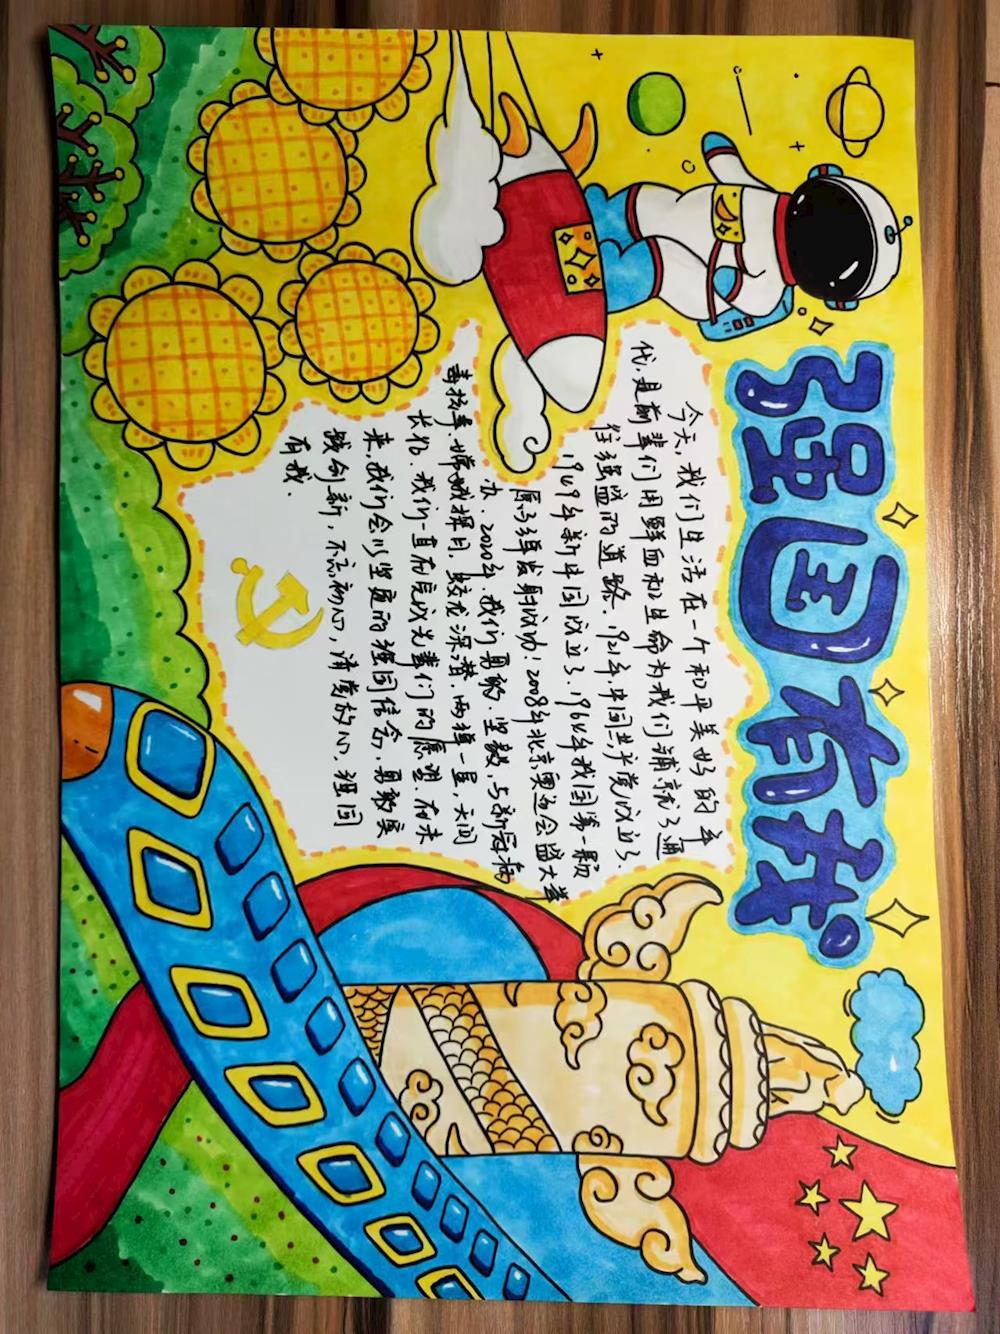 强国有我
今天,我们生活在一个和平美好的年
代,是前辈们用鲜血和生命为我们铺就了通
往强盛的道路.1921年中国共产党成立了.
1949年新中国成立了.1964年我国第一颗
原子弹发射成功!2008年北京奥运会盛大举
办.2020年,我们勇敢、坚毅,与新冠病
毒抗争.嫦娥探月,蛟龙深潜,两弹一星,天问
我们一直在完成先辈们的愿望.在未
来,我们会以坚定的强国信念,勇敢实
践创新,不忘初心,请党放心,强国
有我.